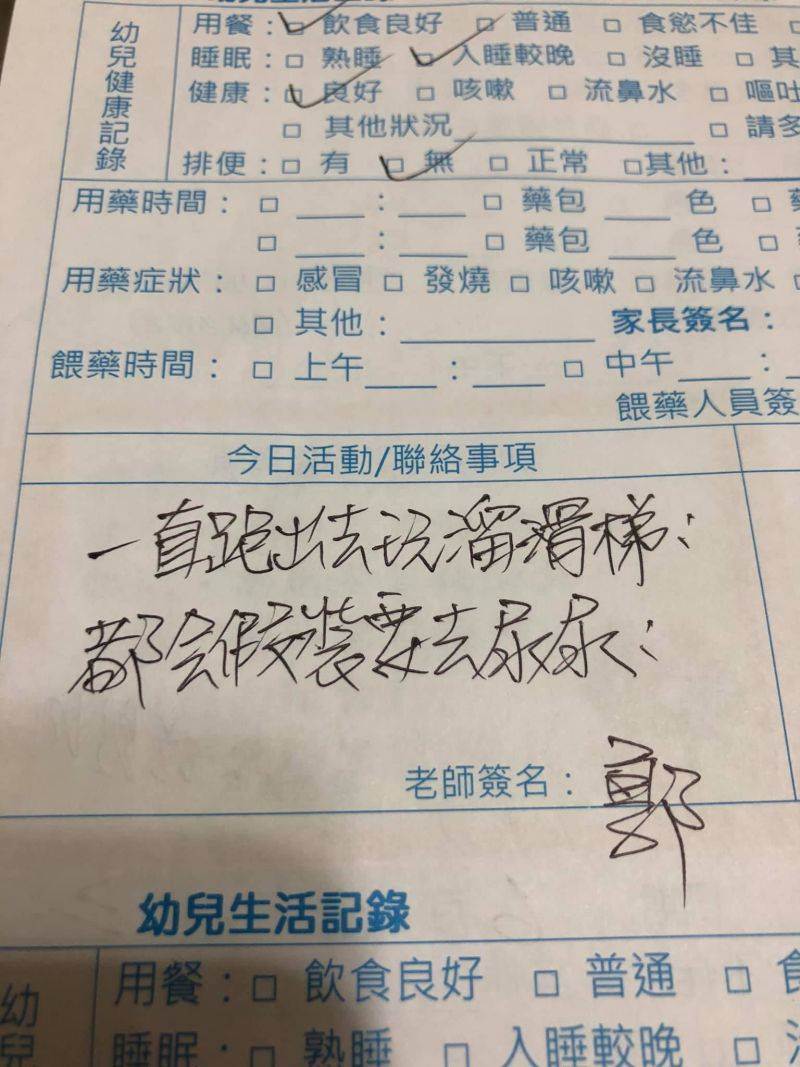 幼兒健康記錄
用餐：□ 飲食良好 □ 普通 □ 食慾不佳 □
睡眠：□ 熟睡 □ 入睡較晚 □ 沒睡 □ 其
健康：□ 良好 □ 咳嗽 □ 流鼻水 □ 嘔吐
□ 其他狀況________ □ 請多
排便：□ 有 □ 無 □ 正常 □其他：__
用藥時間：□ ___：___ □ 藥包 ___ 色 □
□ ___：___ □ 藥包 ___ 色 □
用藥症狀：□ 感冒 □ 發燒 □ 咳嗽 □ 流鼻水 □
□ 其他：________ 家長簽名：
餵藥時間：□ 上午___：___ □ 中午___：
餵藥人員簽
今日活動/聯絡事項
一直跑出去玩溜滑梯；
都會假裝要去尿尿；
老師簽名：郭
幼兒生活記錄
幼兒
用餐：□ 飲食良好 □ 普通 □
睡眠：□ 熟睡 □ 入睡較晚 □